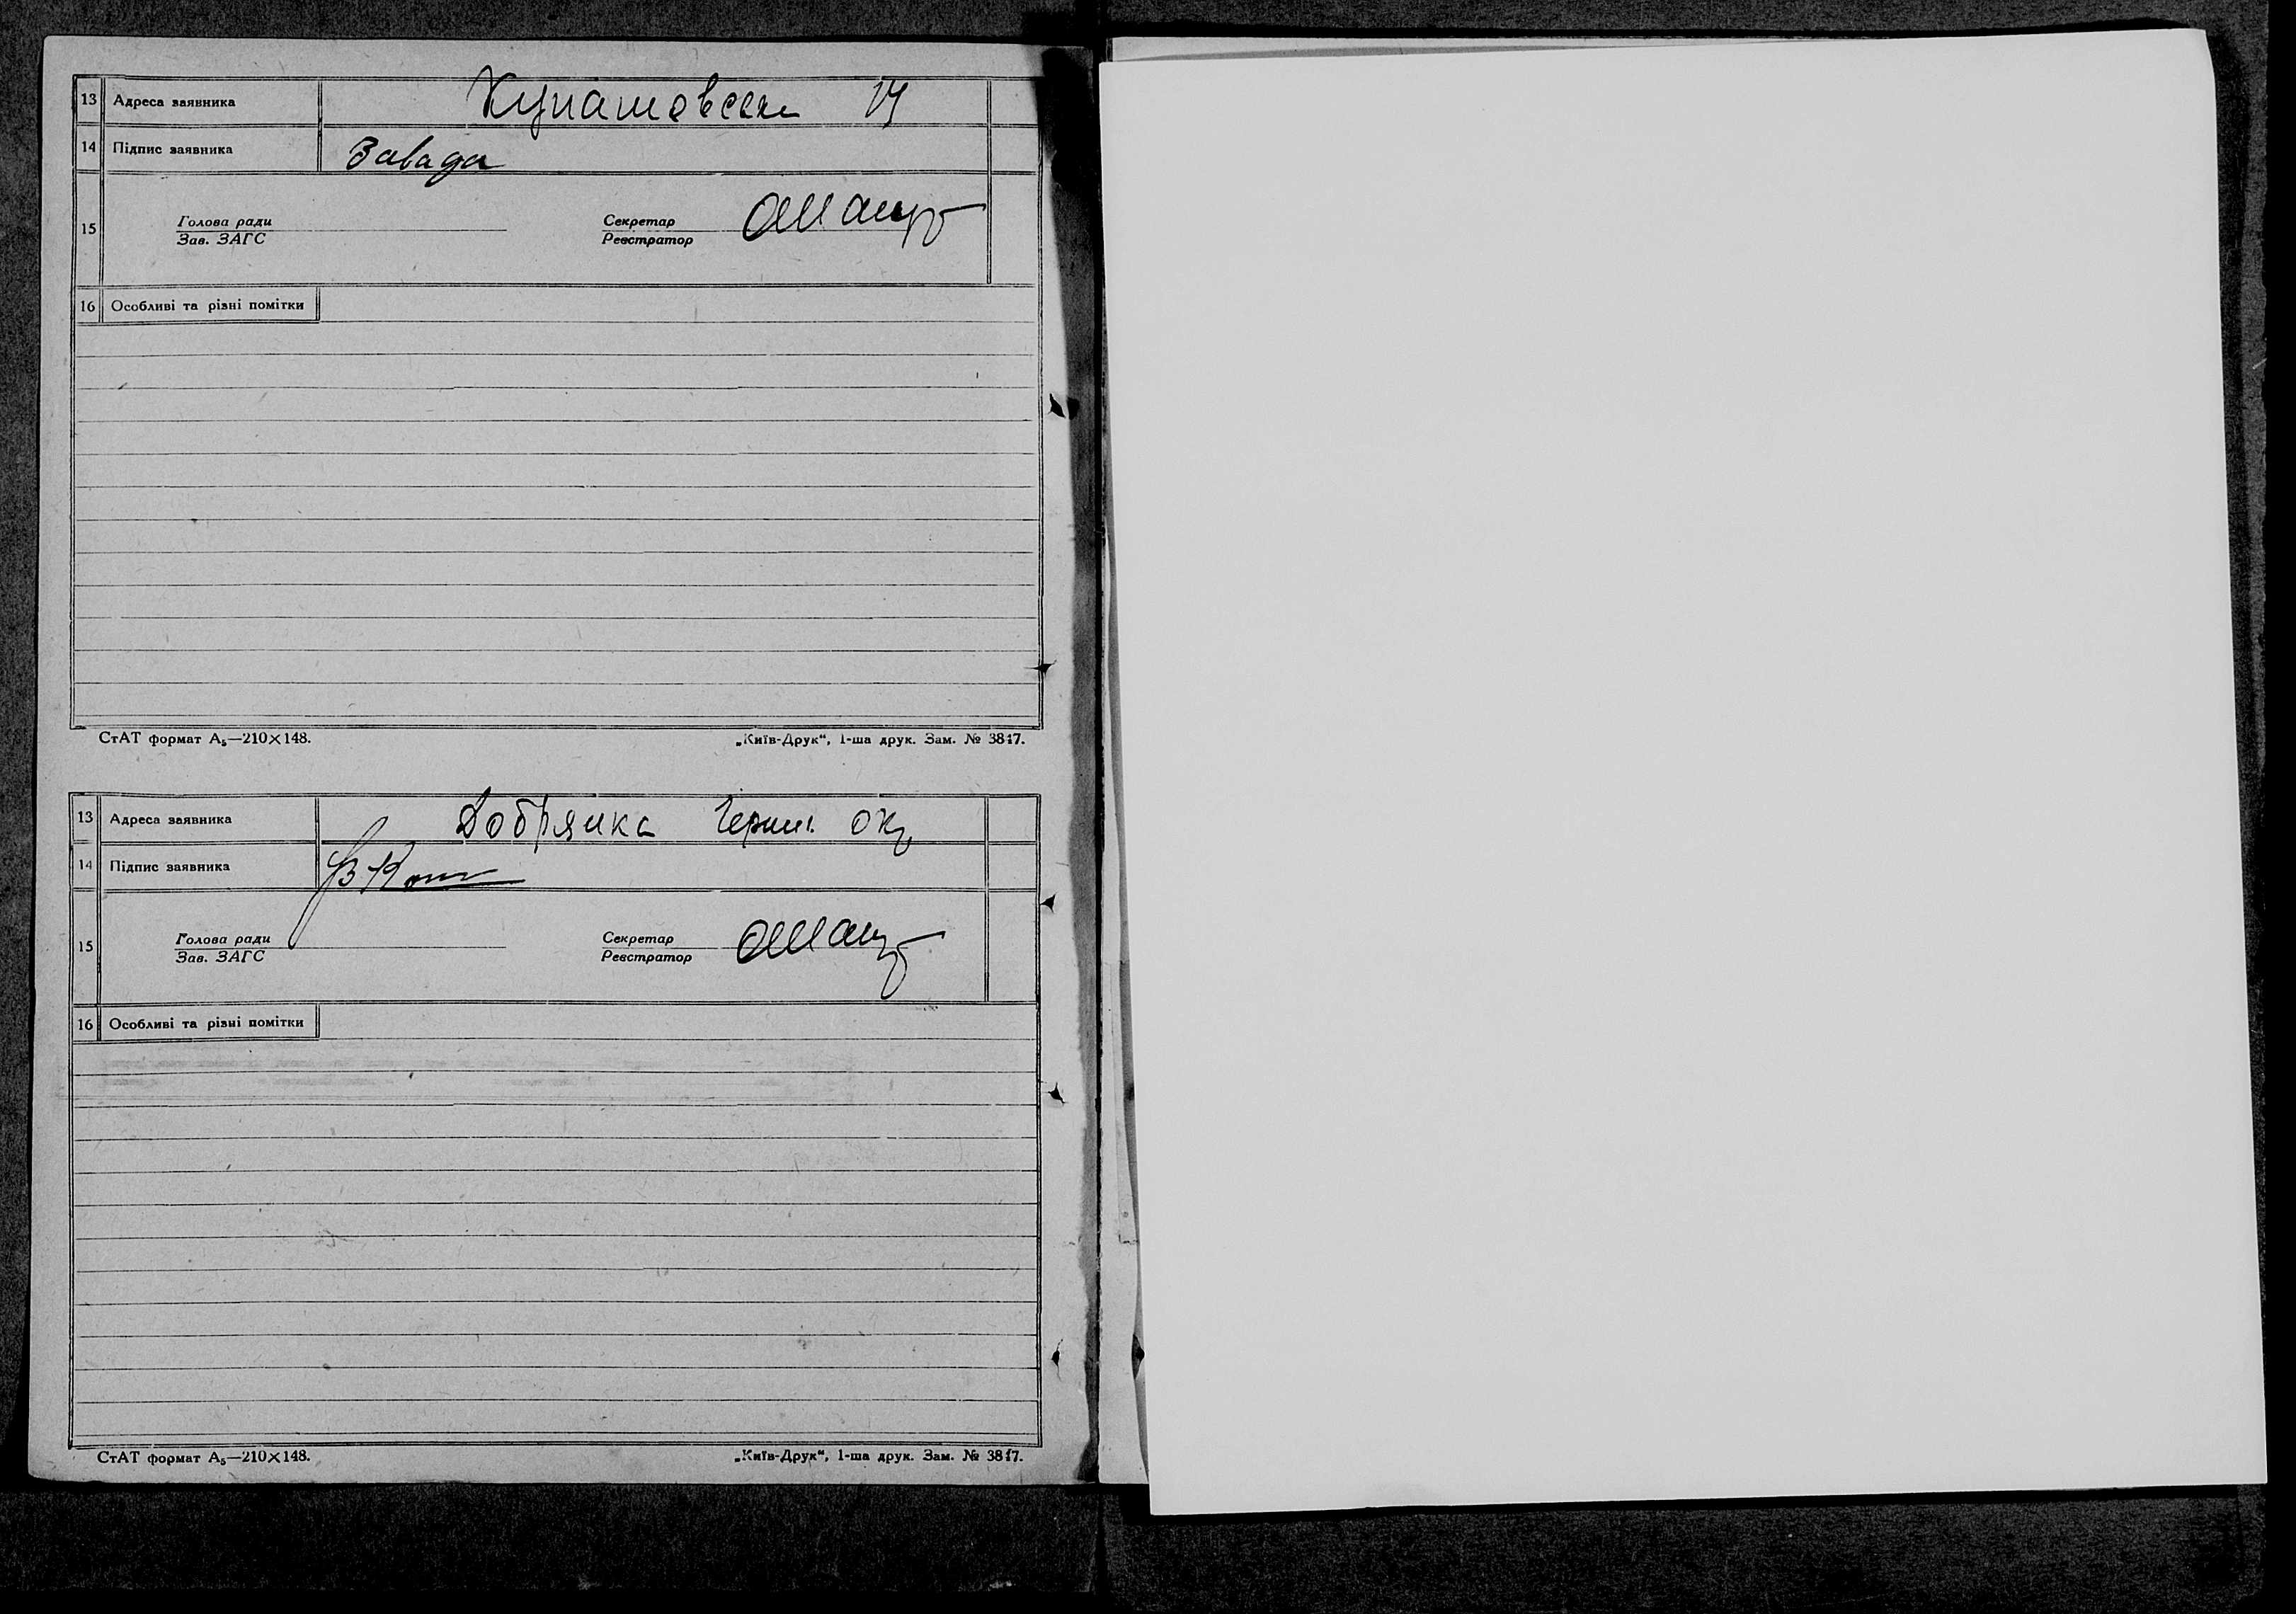 13 Адреса заявника 14
14 Підпис заявника Завада
15 Голова ради Секретар
Зав. ЗАГС Реєстратор
16 Особливі та різні помітки
СтАТ формат А₅—210×148. „Київ-Друк“, 1-ша друк. Зам. № 3847.
13 Адреса заявника Добрянка Черниг. окр
14 Підпис заявника
15 Голова ради Секретар
Зав. ЗАГС Реєстратор
16 Особливі та різні помітки
СтАТ формат А₅—210×148. „Київ-Друк“, 1-ша друк. Зам. № 3847.